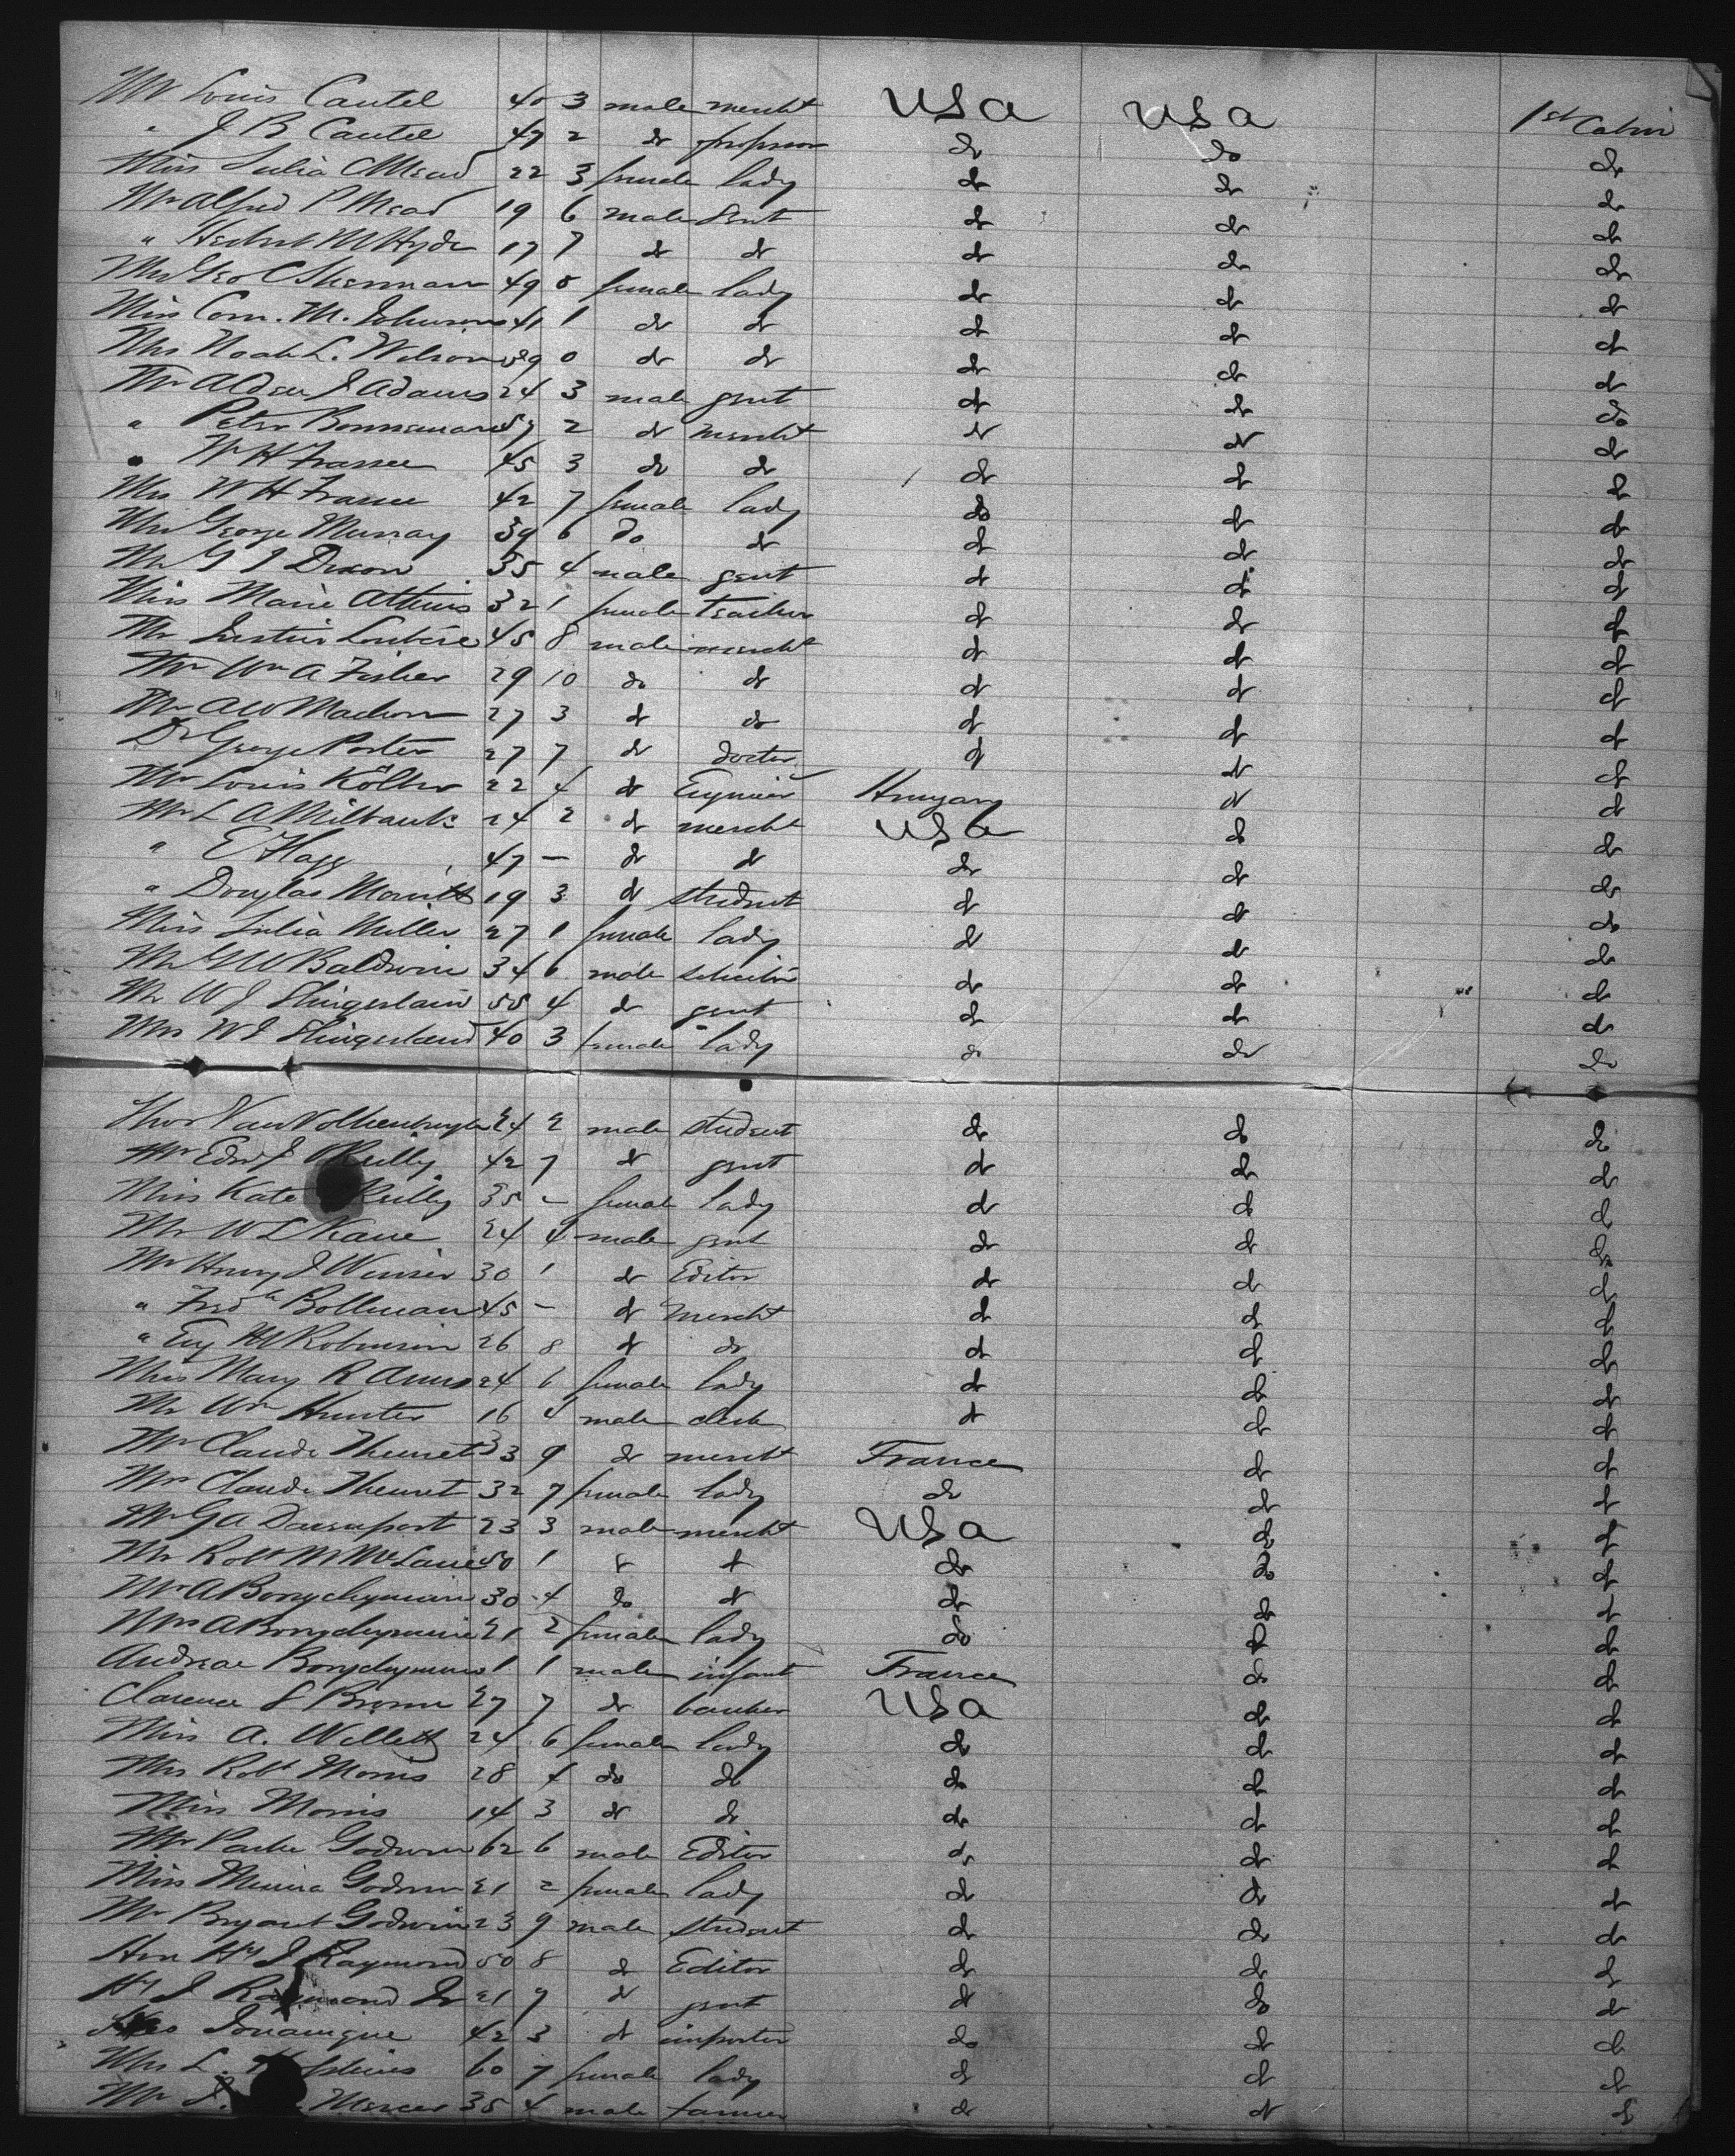 Mr Louis Cautel 40 3 male mercht USA USA 1st Cabin
" J B Cautel 47 2 do professor do do do
Miss Julia C Mead 22 3 female lady do do do
Mr Alfred P Mead 19 6 male gent do do do
" Herbert M Hyde 17 7 do do do do do
Mrs Geo C Sherman 49 8 female lady do do do
Miss Corn. M. Johnson 41 1 do do do do do
Mrs Noah L. Wilson 39 0 do do do do do
Mr Alden J Adams 24 3 male gent do do do
" Peter 57 2 do mercht do do do
" W H Frasee 45 3 do do do do do
Mrs W H Frasee 42 7 female lady do do do
Mrs George Murray 39 6 do do do do do
Mr G J Dixon 35 4 male gent do do do
Miss Marie Attkins 32 1 female teacher do do do
Mr Justin Loubere 45 8 male mercht do do do
Mr Wm A Fisher 29 10 do do do do do
Mr A W 27 3 do do do do do
Dr George Porter 27 7 do doctor do do do
Mr Louis 22 4 do Hungary do do
Mr L A Milbank 24 2 do mercht USA do do
" E Hagg 47 — do do do do do
" Douglas Merritt 19 3 do student do do do
Miss Julia Miller 27 1 female lady do do do
Mr G W Baldwin 34 6 male solicitor do do do
Mr W J Slingerland 55 4 do gent do do do
Mrs W J Slingerland 40 3 female lady do do do
Thos Van Volkenburgh 24 2 male student do do do
Mr Edw J O'Reilly 42 7 do gent do do do
Miss Kate Reilly 35 — female lady do do do
Mr W L Kane 24 4 male gent do do do
Mr Henry J Winser 30 1 do Editor do do do
" Fredk Bollman 45 — do mercht do do do
" Eug H Robinson 26 8 do do do do do
Miss Mary R Ames 24 6 female lady do do do
Mr Wm Hunter 16 4 male clerk do do do
Mr Claude Theuret 33 9 do mercht France do do
Mrs Claude Theuret 32 7 female lady do do do
Mr G A Davenport 23 3 male mercht USA do do
Mr Robt M McLane 50 1 do do do do do
Mr A 30 4 do do do do do
Mrs A 21 2 female lady do do do
Andreae 1 1 male infant France do do
Clarence S Brown 27 7 do banker USA do do
Miss A. Willett 24 6 female lady do do do
Mrs Robt Morris 28 4 do do do do do
Miss Morris 14 3 do do do do do
Mr Parke Godwin 62 6 male Editor do do do
Miss Minna Godwin 21 2 female lady do do do
Mr Bryant Godwin 23 9 male student do do do
Hon Hy J Raymond 50 8 do Editor do do do
Hy J Raymond Jr 21 7 do gent do do do
42 3 do importer do do do
Mrs L. 60 7 female lady do do do
Mr J. Mercer 35 4 male farmer do do do